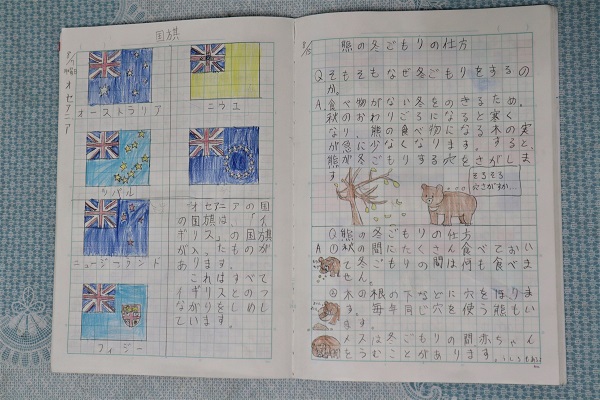 国旗
オセアニア
オーストラリア
ニウエ
ツバル
ニュージーランド
フィジー
オセアニアの国
の国旗は、「イ
ギリス」の国旗
が入ったものが
あります。
これはすべて
イギリスとのつ
ながりをしめし
ています。
熊の冬ごもりの仕方
Qそもそもなぜ冬ごもりをするの
か。
A食べ物がない冬をのきるため。
秋のおわりごろになると寒く
なり、熊の食べ物になる木の実
が急に少なくなります。すると、
熊が冬ごもりする穴をさがしま
す。
そろそろ
穴さがすか。
Q熊の冬ごもりの仕方
A①秋の間にたくさん食べておい
て冬ごもりの間は何も食べま
せん。
②木の根の下などに穴をほりま
す。毎年同じ穴を使う熊もい
ます。
メスは冬ごもりの間赤ちゃん
をうむことがあります。